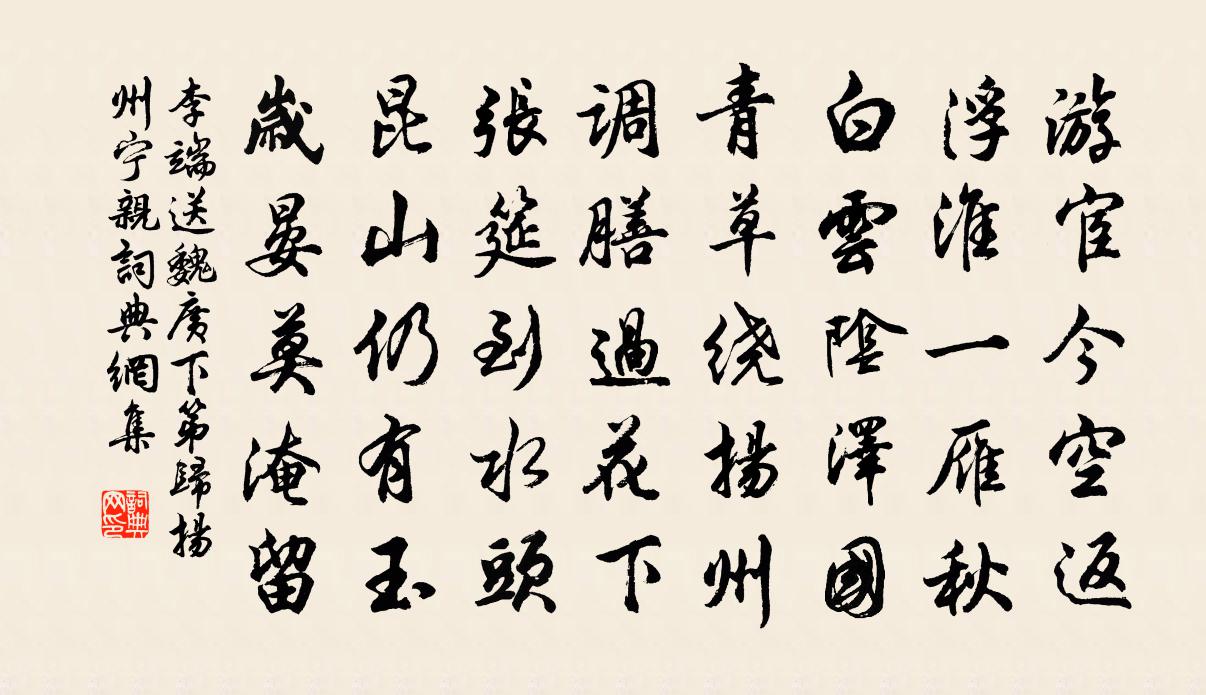 游宦今空返
浮淮一雁秋
白雲陰澤國
青草绕揚州
调膳過花下
張筵到水頭
昆山仍有玉
歲晏莫淹留
李端送魏廣下第歸揚
州宁親詞典網集
詞典网印